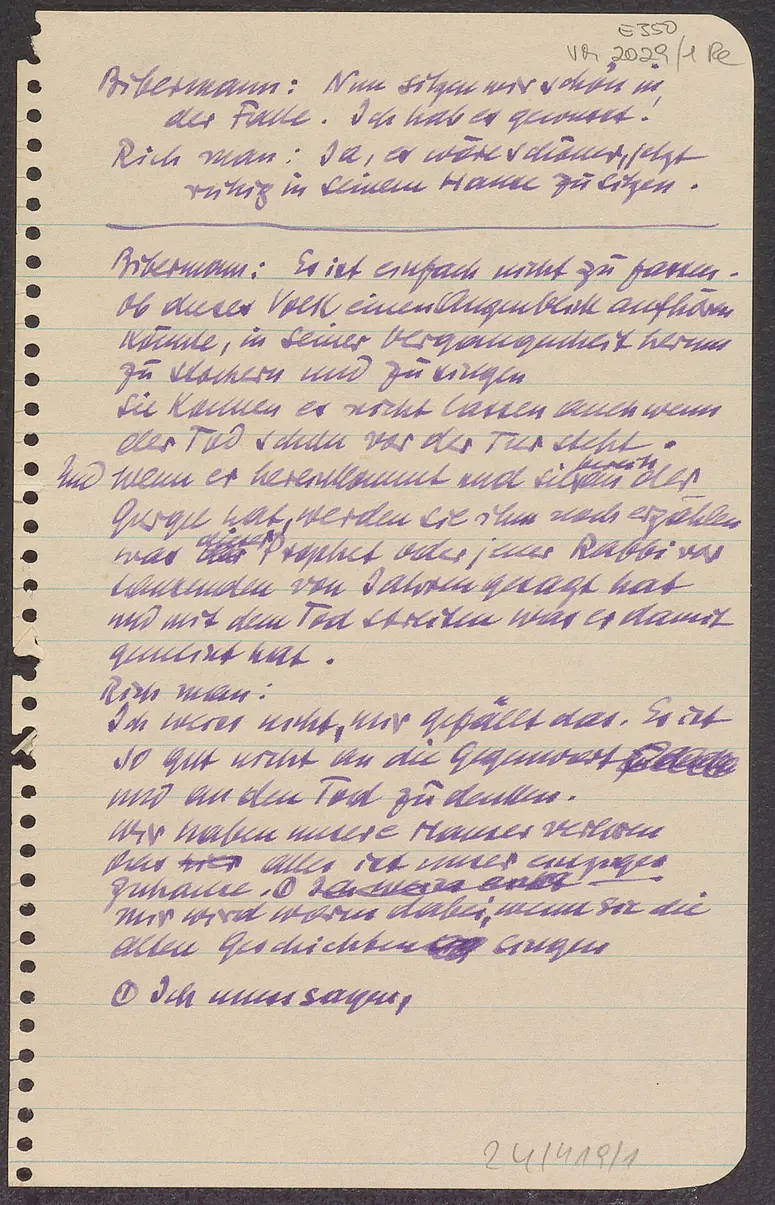 E350
VR 2029/1 Re
Bibermann: Nun sitzen wir schön in
der Falle. Ich hab es gewusst!
Rich man: Ja, es wäre schöner, jetzt
ruhig in seinem Hause zu sitzen.
Bibermann: Es ist einfach nicht zu fassen.
Ob dieses Volk einen Augenblick aufhören
könnte, in seiner Vergangenheit herum
zu stochern und zu singen
Sie können es nicht lassen auch wenn
der Tod schon vor der Tür steht.
Und wenn er hereinkommt und sie bereits an der
Gurgel hat, werden sie ihm noch erzählen
was dieser Prophet oder jener Rabbi vor
tausenden von Jahren gesagt hat
und mit dem Tod streiten was er damit
gemeint hat.
Rich man:
Ich weiss nicht, mir gefällt das. Es ist
so gut nicht an die Gegenwart
und an den Tod zu denken.
Wir haben unsere Häuser verloren
Das hier alles ist unser einziges
Zuhause. ① Ich weiss nicht
mir wird warm dabei, wenn sie die
alten Geschichten singen
① Ich muss sagen,
24/419/1